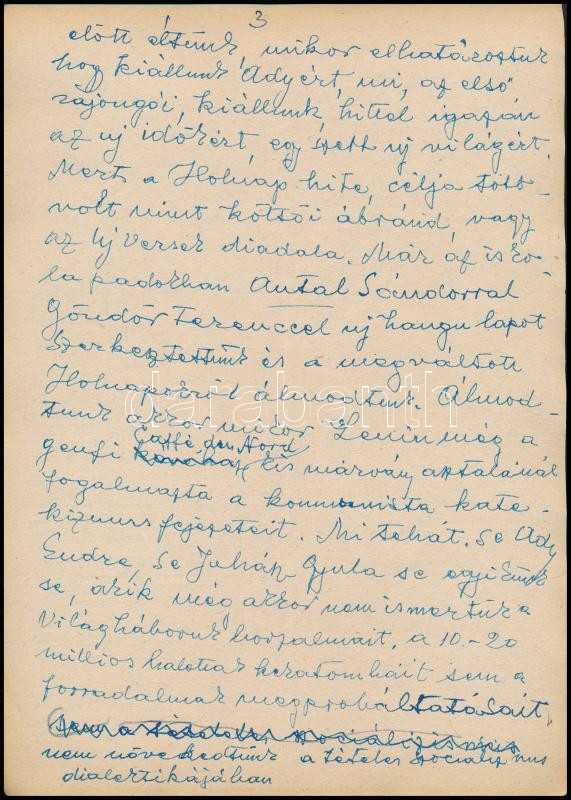 3
előtt éltünk, mikor elhatároztuk
hogy kiállunk Adyért, mi, az első
rajongói, kiállunk, hittel igazán
az uj időkért egy szebb uj világért.
Mert a Holnap hite, célja több
volt mint költői ábránd, vagy
az Uj Versek diadala. Már az isko-
la padokban Antal Sándorral
Göndör Ferenccel uj hangu lapot
szerkeztettünk és a megváltott
Holnapról álmodtunk. Álmod-
tunk akkor mikor Lenin még a
Caffé du Nord
genfi kis márvány asztalánál
fogalmazta a kommunista kate-
kizmus fejezeteit. Mi tehát, se Ady
Endre, se Juhász Gyula se egyikünk
se, akik még akkor nem ismertük a
Világháboruk borzalmait, a 10.-20
milliós halottak hekatombáit sem a
forradalmak megpróbáltatásait,
sem a szociálizmus
nem növekedtünk a tételes szocializmus
dialektikájában
darabanth